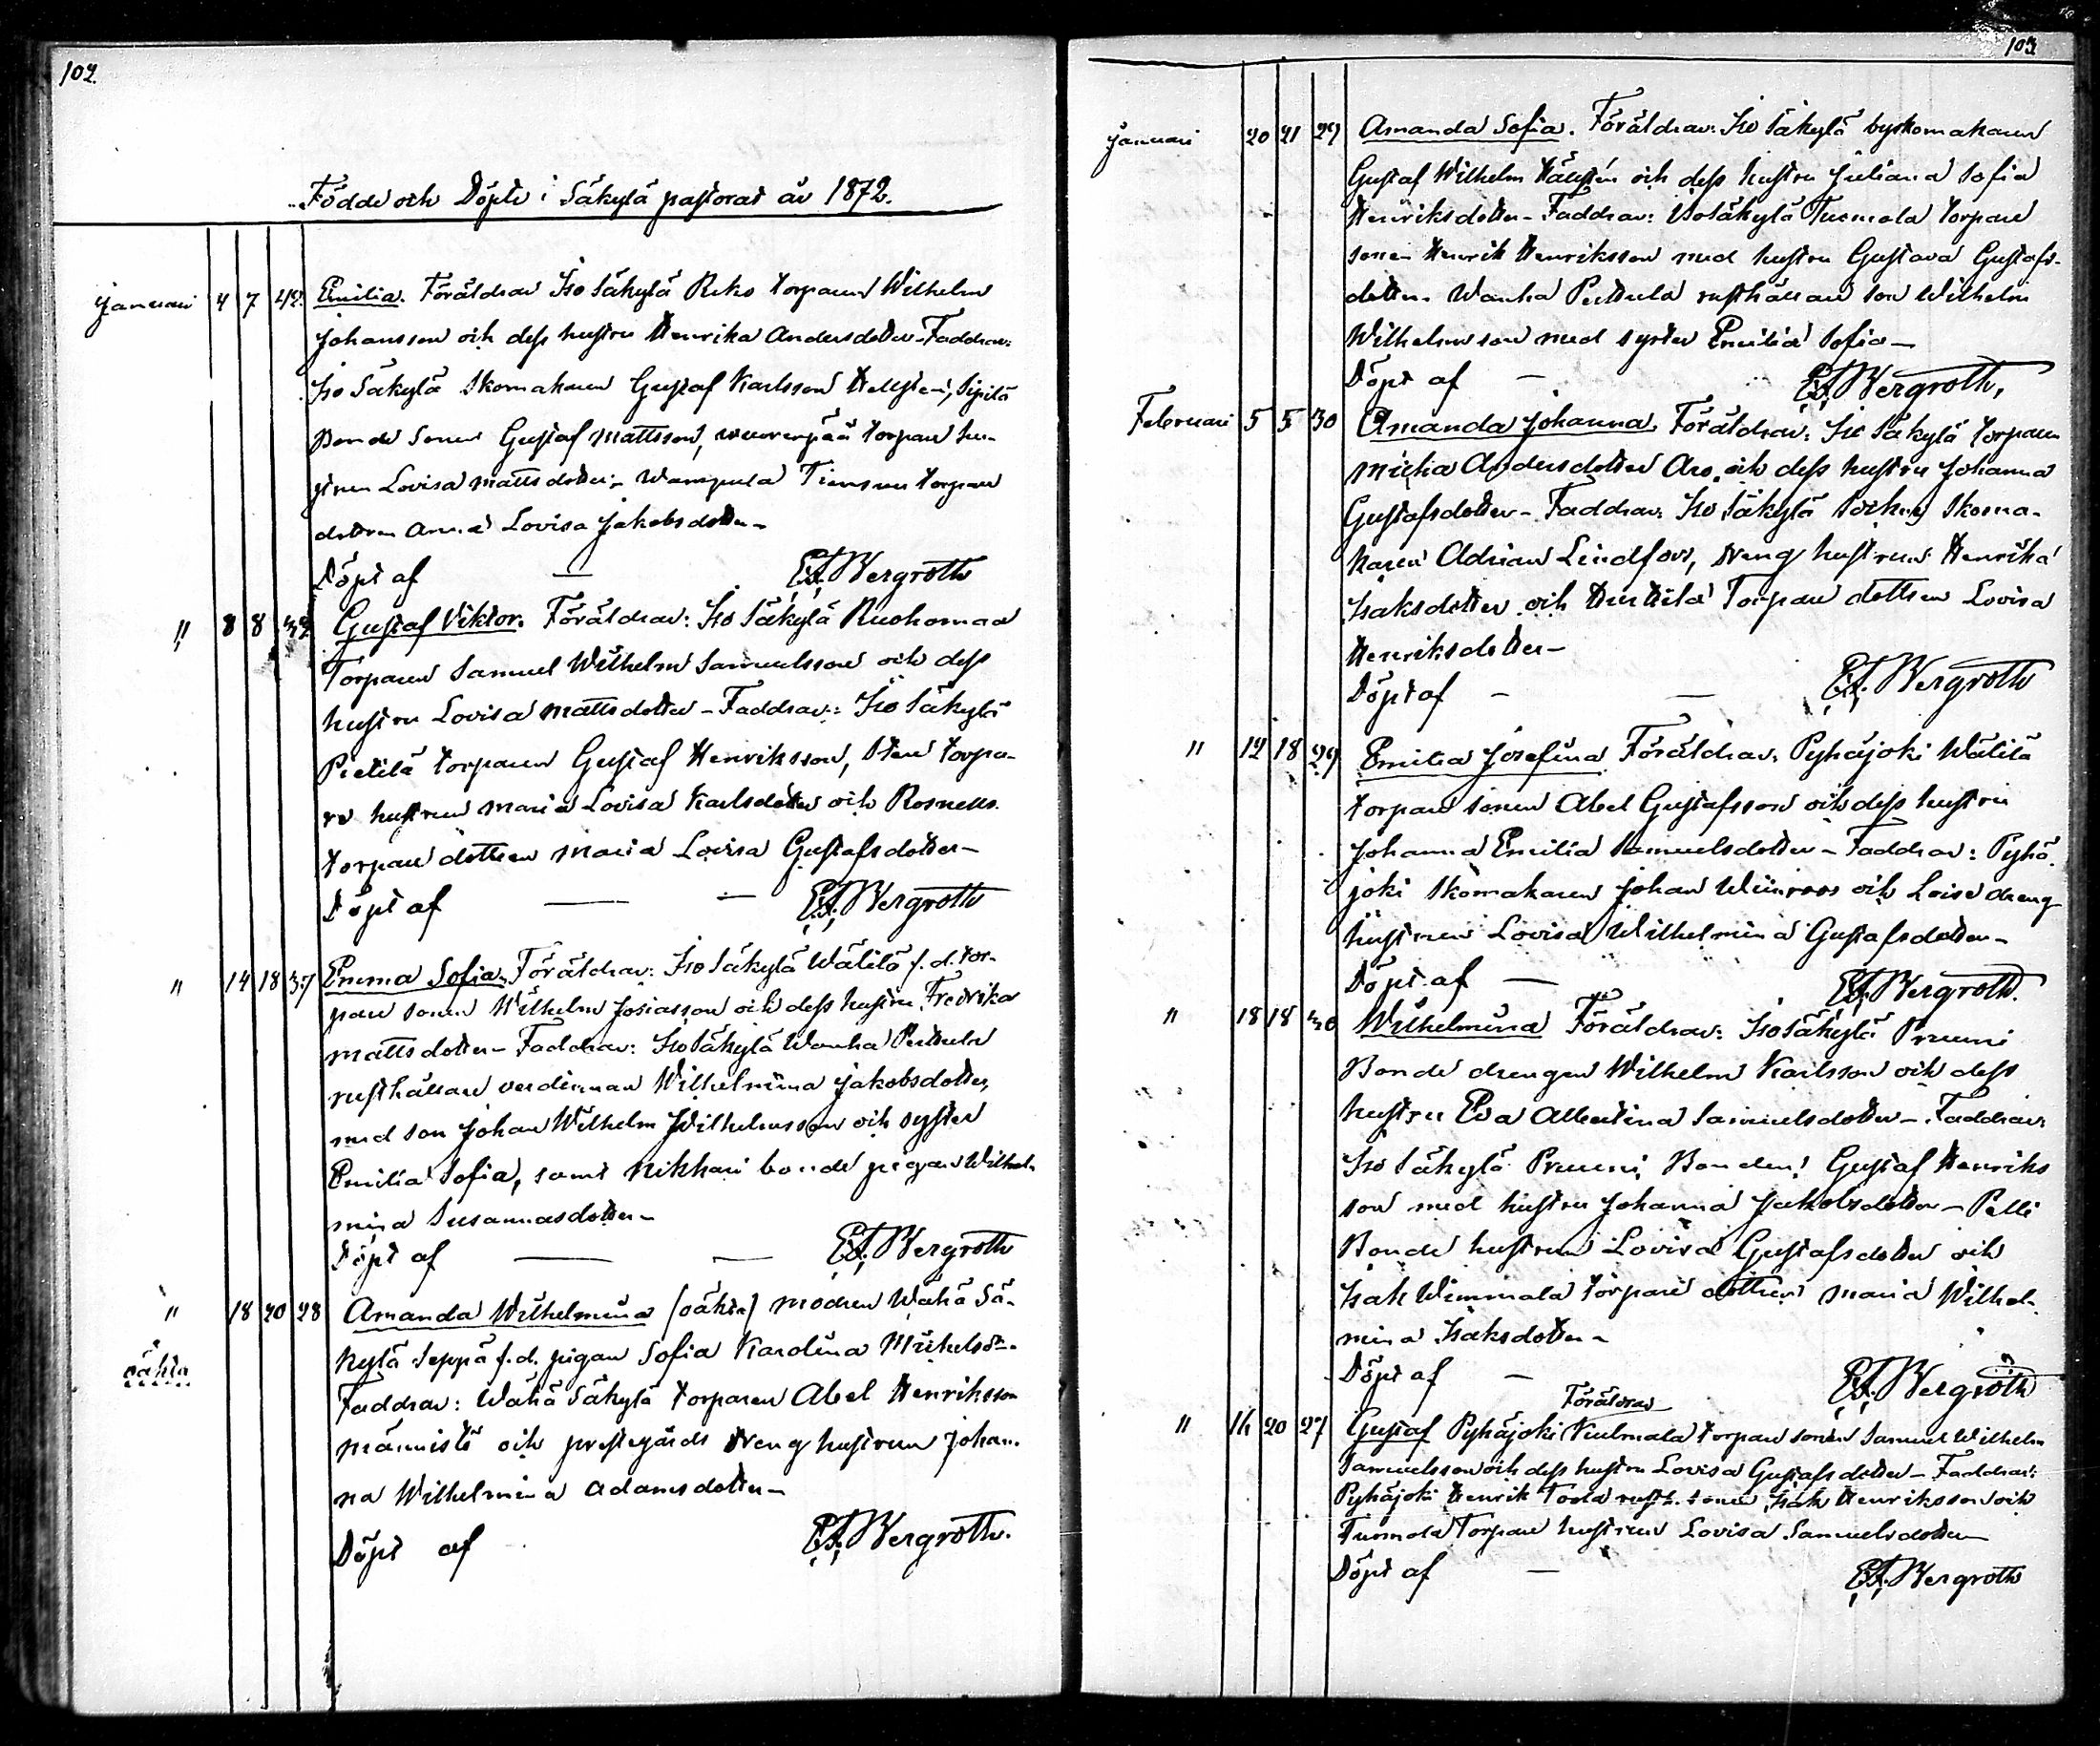 102.
Födde och Döpte i Säkylä pastorat år 1872.
Januari 4 7 42. Emilia. Föräldrar Iso Säkylä Reko torparen Wilhelm
Johansson och dess hustru Henrika Andersdotter - Faddrar:
Iso Säkylä Skomakaren Gustaf Karlsson Hellsten, Sipilä
Bonde Sonen Gustaf Mattsson, torpare hu-
strun Lovisa Mattsdotter, Wampula torpare
dottren Anna Lovisa Jakobsdotter -
Döpt af — E.F. Bergroth
" 8 8 Gustaf Viktor. Föräldrar: Iso Säkylä Ruohomaa
Torparen Samuel Wilhelm Samuelsson och dess
hustru Lovisa Mattsdotter - Faddrar: Iso Säkylä
Pietilä torparen Gustaf Henriksson, Sten torpa-
re hustrun Maria Lovisa Karlsdotter och Rosnells
torpare dottren Maria Lovisa Gustafsdotter -
Döpt af — — E.F. Bergroth
" 14 18 37 Emma Sofia. Föräldrar: Iso Säkylä Wälilä f.d. tor-
pare sonen Wilhelm Josiasson och dess hustru Fredrika
Mattsdotter - Faddrar: Iso Säkylä Wanha Perttula
rusthållare verdinnan Wilhelmina Jakobsdotter,
med son Johan Wilhelm Wilhelmsson och syster
Emilia Sofia, samt Nikkari bonde pigan Wilhel-
mina Susannasdotter -
Döpt af — — E.F. Bergroth
" 18 20 28 Amanda Wilhelmina (oäkta) modren Wähä Sä-
oäkta kylä Seppä f.d. pigan Sofia Karolina Mikelsdr.
Faddrar: Wähä Säkylä torparen Abel Henriksson
Männistö och prestegårds dreng hustrun Johan-
na Wilhelmina Adamsdotter -
Döpt af E.F. Bergroth.
103
Januari 20 21 29 Amanda Sofia. Föräldrar: Iso Säkylä byskomakaren
Gustaf Wilhelm Hällsten och dess hustru Juliana Sofia
Henriksdotter - Faddrar: Iso Säkylä Tuomola torpare
sonen Henrik Henriksson med hustru Gustava Gustafs-
dotter. Wanha Perttula rusthållare son Wilhelm
Wilhelmsson med syster Emilia Sofia -
Döpt af — E.F. Bergroth,
Februari 5 5 30 Amanda Johanna. Föräldrar: Iso Säkylä torparen
Andersdotter Aro, och dess hustru Johanna
Gustafsdotter - Faddrar: Iso Säkylä Socken Skoma-
karen Adrian Lindfors, dreng hustrun Henrika
Isaksdotter och Torpare dottren Lovisa
Henriksdotter -
Döpt af — — E.F. Bergroth
" 12 18 29 Emilia Josefina. Föräldrar: Pyhäjoki Wälilä
torpare sonen Abel Gustafsson och dess hustru
Johanna Emilia Samuelsdotter - Faddrar: Pyhä
joki Skomakaren Johan Wiinroos och dreng
hustrun Lovisa Wilhelmina Gustafsdotter -
Döpt af — E.F. Bergroth.
" 18 18 30 Wilhelmina Föräldrar: Iso Säkylä Pruuni
Bonde drengen Wilhelm Karlsson och dess
hustru Eva Albertina Samuelsdotter - Faddrar:
Iso Säkylä Pruuni Bonden Gustaf Henriks
son med hustru Johanna Jakobsdotter - Pelli
Bonde hustrun Lovisa Gustafsdotter och
Isak Wimmala torpare dottren Maria Wilhel-
mina Isaksdotter -
Döpt af — E.F. Bergroth
Föräldrar
" 16 20 27 Gustaf Pyhäjoki Kulmala torpare sonen Samuel Wilhelm
Samuelsson och dess hustru Lovisa Gustafsdotter - Faddrar:
Pyhäjoki Henrik Toola rusth. sonen Isak Henriksson och
Tuomola Torpare hustrun Lovisa Samuelsdotter
Döpt af — E.F. Bergroth